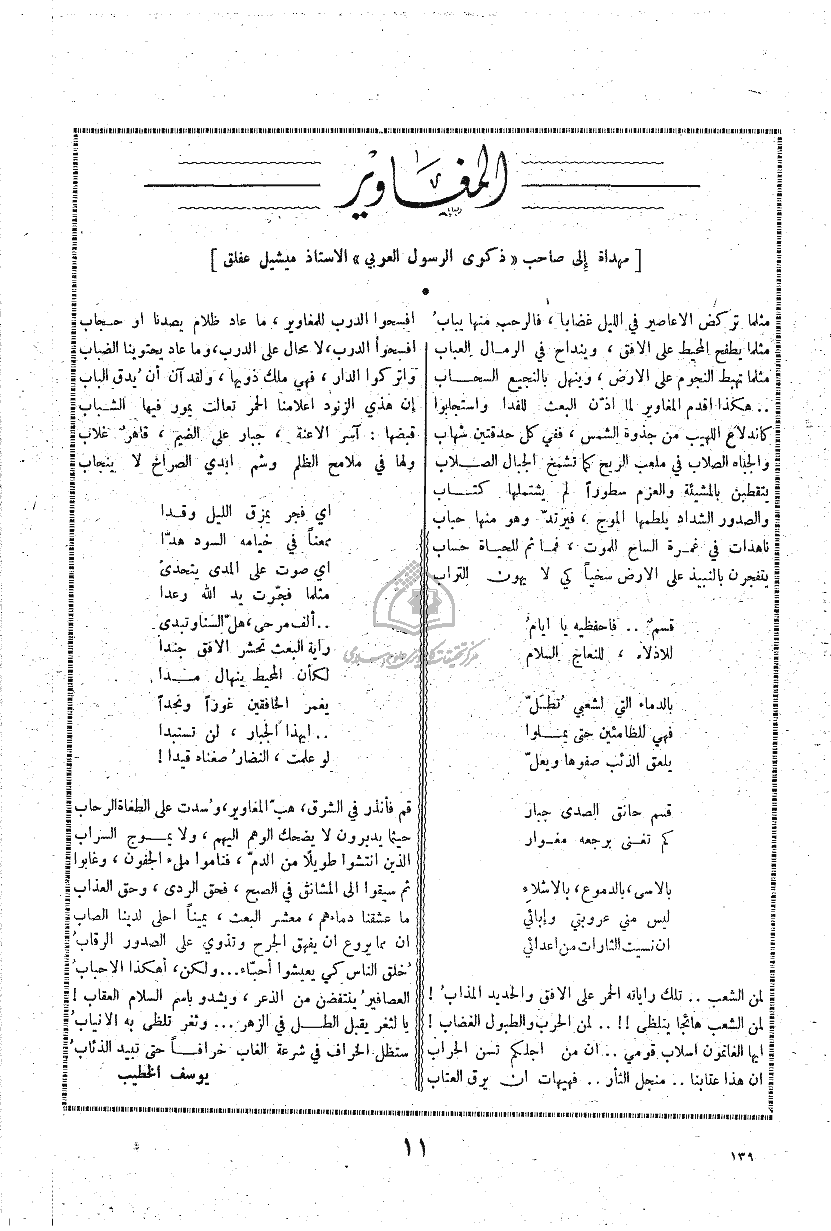 المغاوير
[ مهداة إلى صاحب « ذكرى الرسول العربي » الاستاذ ميشيل عفلق ]
مثلما تركض الاعاصير في الليل غضابا ، فالرحب منها يباب
مثلما يطفح المحيط على الافق ، وينداح في الرمال العباب
مثلما تهبط النجوم على الارض ، وينهل بالنجيع السحاب
.. هكذا اقدم المغاوير لما اذّن البعث للفدا واستجابوا
كاندلاع اللهيب من جذوة الشمس ، ففي كل حدقتين شهاب
والجباه الصلاب في ملعب الريح كما تشمخ الجبال الصلاب
يتقطين بالمشيئة والعزم سطوراً لم يشتملها كتاب
والصدور الشداد يلطمها الموج ، فيرتدّ وهو منها حباب
ناهدات في غمرة الساح للموت ، فما ثم للحياة حساب
يتفجرن بالنبيذ على الارض سخياً كي لا يهون التراب
قسمٌ .. فاحفظيه يا ايامُ
للاذلاء ، للنعاج السلام
بالدماء التي لشعبي تُطَلّ
فهي للظامئين حتى يملوا
يلعق الذئب صفوها ويعلّ
قسم حانق الصدى جبار
كم تغنى برجعه مغوار
بالاسى ، بالدموع ، بالاشلاءِ
ليس مني عروبتي وإبائي
ان نسيت الثارات من اعدائي
لمن الشعب .. تلك راياته الحمر على الافق والحديد المذاب !
لمن الشعب هائجاً يتلظى !! .. لمن الحرب والطبول الغضاب !
ايها الغانمون اسلاب قومي .. ان من اجلكم تسن الحراب
ان هذا عتابنا .. منجل الثأر .. فهيهات ان يرق العتاب
افسحوا الدرب للمغاوير ، ما عاد ظلام يصدنا او حجاب
افسحوا الدرب ، لا محال على الدرب ، وما عاد يحتوينا الضباب
واتركوا الدار ، فهي ملك ذويها ، ولقد آن أن يُدق الباب
إن هذي الزنود اعلامنا الحمر تعالت يمور فيها الشباب
قبضها : آسر الاعنة ، جبار على الضيم ، قاهر غلاب
ولها في ملامح الظلم وشم ابدي الصراخ لا ينجاب
اي فجر يمزق الليل وقدا
ممعناً في خيامه السود هدّا
اي صوت على المدى يتحدى
مثلما فجّرت يد الله وعدا
.. ألف مرحى ، هلّ السنا وتبدى
راية البعث تحشر الافق جندا
لكأن المحيط ينهال مدا
يغمر الخافقين غوراً ونجداً
.. ايهذا الجبار ، لن تستبدا
لو علمت ، النضارُ صغناه قيدا !
قم فأنذر في الشرق ، هبّ المغاوير ، وسدت على الطغاة الرحاب
حيثما يدبرون لا يضحك الوهم اليهم ، ولا يموج السراب
الذين انتشوا طويلاً من الدمّ ، فناموا ملء الجفون ، وغابوا
ثم سيقوا الى المشانق في الصبح ، فحق الردى ، وحق العذاب
ما عشقنا دماءهم ، معشر البعث ، يميناً احلى لدينا الصاب
ان مما يروع ان يفهق الجرح وتذوي على الصدور الرقابُ
خُلق الناس كي يعيشوا أحبّاء ... ولكن ، أهكذا الاحبابُ
العصافيرُ ينتفضن من الذعر ، ويشدو باسم السلام العقاب !
يا لثغر يقبل الطل في الزهر ... وثغر تلظى به الانيابُ
ستظل الخراف في شرعة الغاب خرافاً حتى تبيد الذئابُ
يوسف الخطيب
مركز تحقيقات كامپيوتري علوم اسلامى
١١
١٣٩